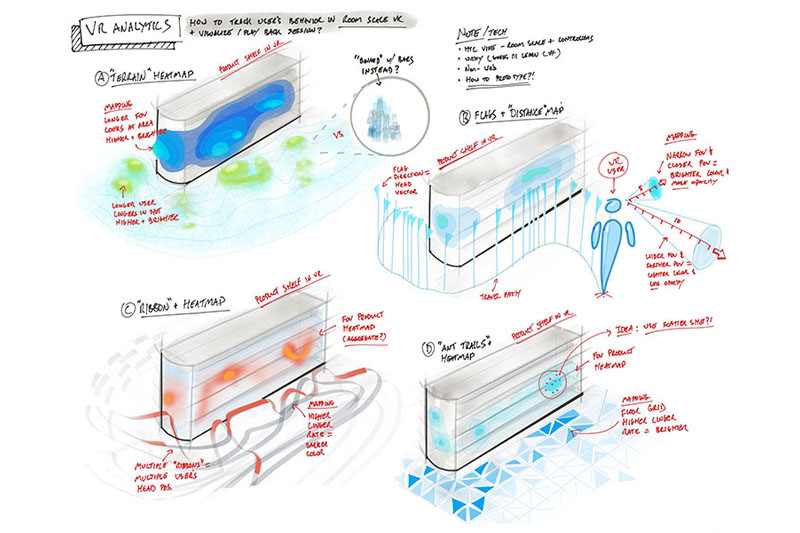 VR ANALYTICS
HOW TO TRACK USER'S BEHAVIOR IN ROOM SCALE VR
+ VISUALIZE / PLAY BACK SESSION?
NOTE/TECH
• HTC VIVE - ROOM SCALE + CONTROLLERS
• NON-WEB
• HOW TO PROTOTYPE?!
A "TERRAIN" HEATMAP
PRODUCT SHELF IN VR
"BOXES" W/ BARS
INSTEAD?
VS
MAPPING
LONGER FOV
LOOKS AT AREA
HIGHER + BRIGHTER
LONGER USER
LINGERS IN SPOT
HIGHER + BRIGHTER
B FLAGS + "DISTANCE" MAP
PRODUCT SHELF IN VR
FLAG
DIRECTION =
HEAD
VECTOR
TRAVEL PATH
VR
USER
MAPPING
NARROW FOV &
CLOSER POV =
BRIGHTER COLOR &
MORE OPACITY
5
10
WIDER FOV &
FURTHER POV =
LIGHTER COLOR &
LESS OPACITY
C "RIBBON" + HEATMAP
PRODUCT SHELF IN VR
FOV PRODUCT
HEATMAP
(AGGREGATE?)
MAPPING
HIGHER
LINGER
RATE =
DARKER
COLOR
MULTIPLE "RIBBONS" =
MULTIPLE USER'S
HEAD POS.
D "ANT TRAILS" +
HEATMAP
PRODUCT SHELF IN VR
IDEA: USE SCATTER SHOT?!
FOV PRODUCT
HEATMAP
MAPPING
FLOOR GRID
HIGHER LINGER
RATE = BRIGHTER